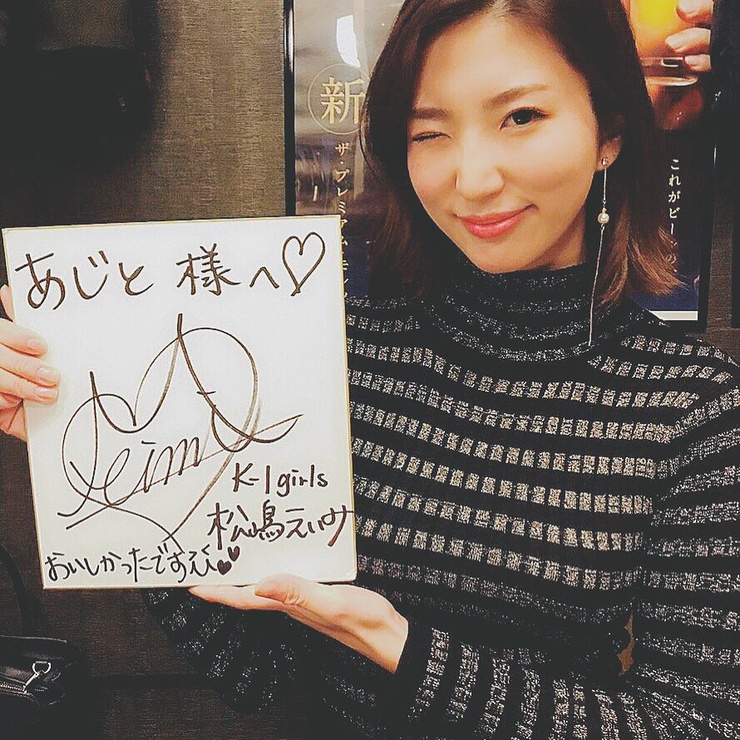 あじと 様 へ♡
Eimi
K-1 girls
松嶋えいみ
おいしかったですえび♥♥
新
ザ・プレミアム・モルツ
これがビー